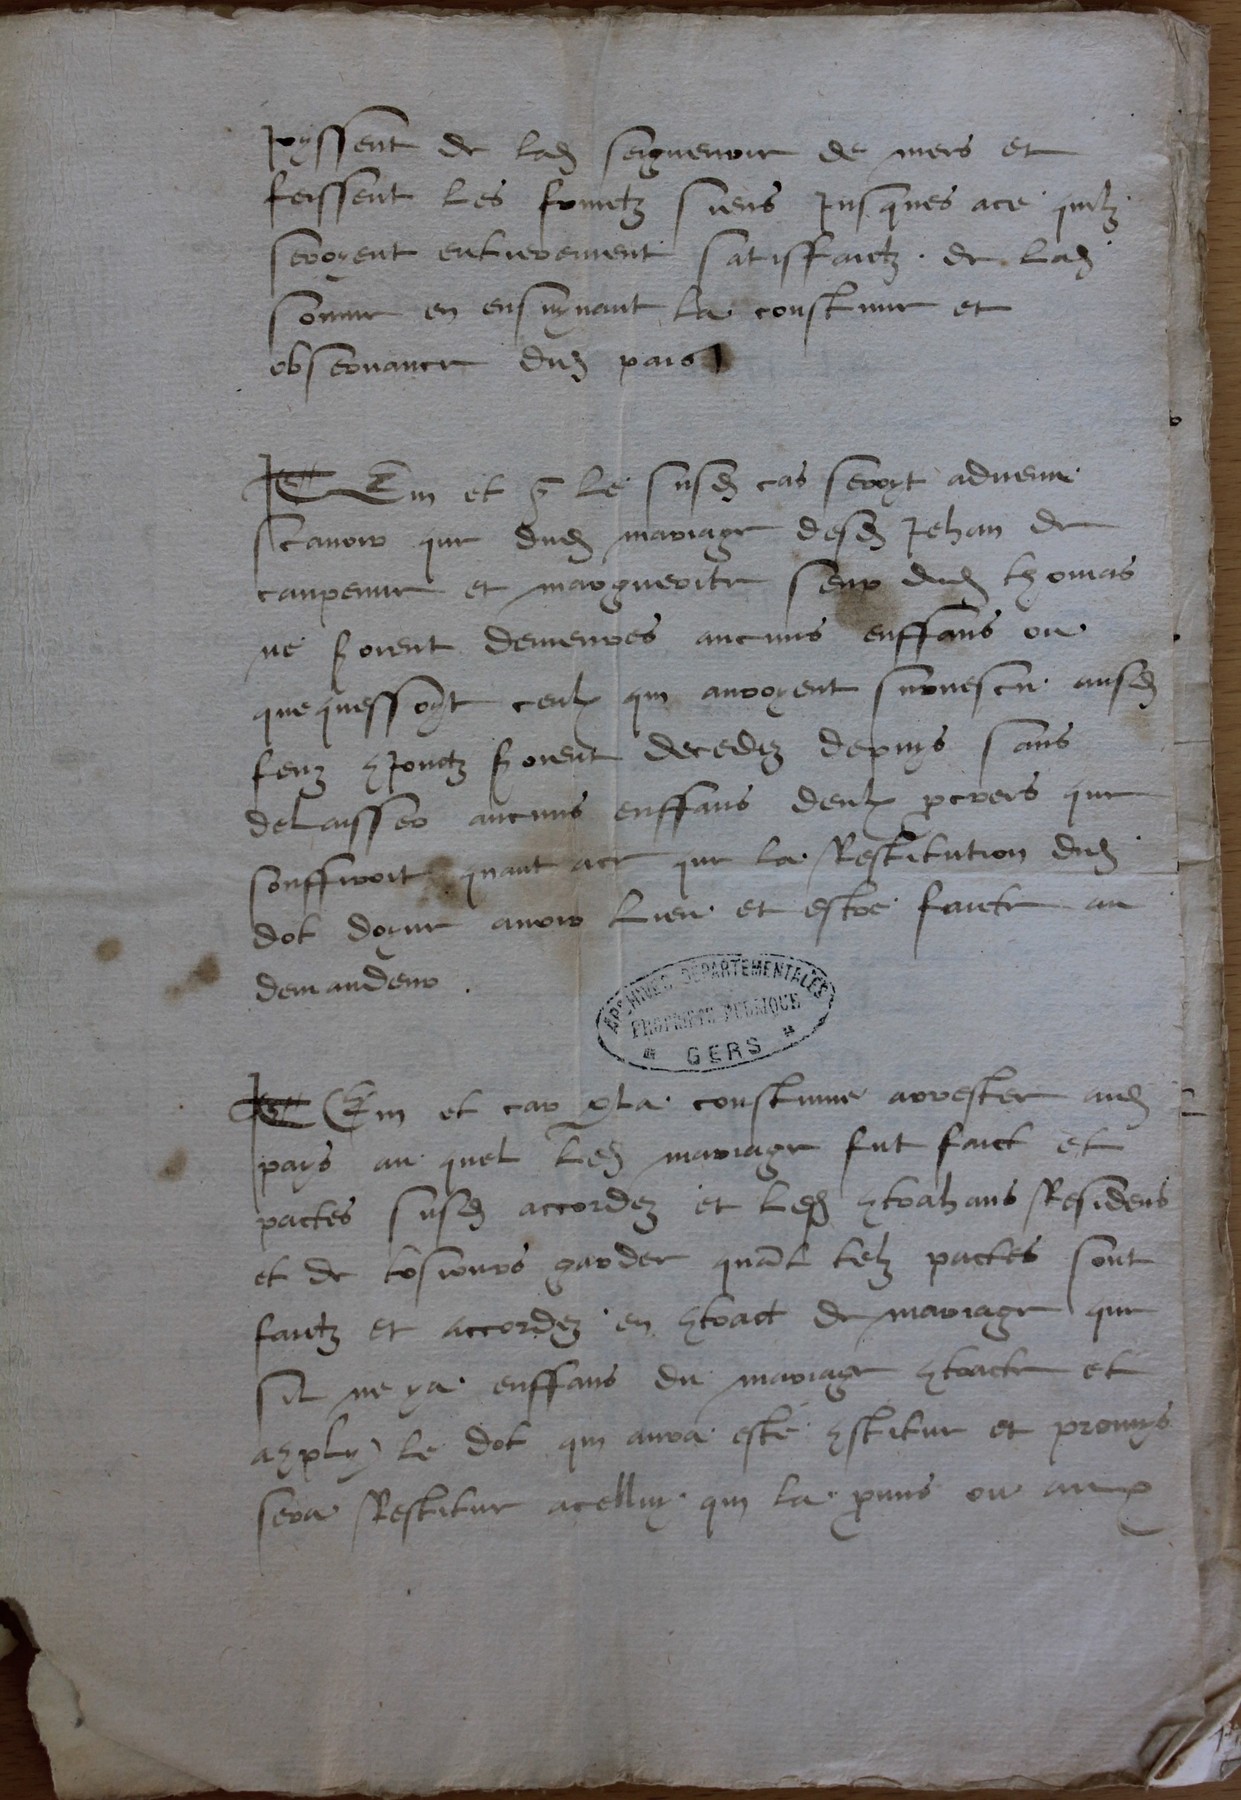 joyssent de lad seigneurie de mers et
feissent les fruictz siens jusques a ce quilz
seroyent entierement satisffaictz de lad
somme en ensuyvant la coustume et
observance dud pais
Item et q le susd cas seroyt advenu
scavoir que dud mariage desd Jehan de
campenne et marguerite seur dud thomas
ne soient demeures aucuns enffans ou
que quessoyt ceulx qui auroyent survescu ausd
feuz cjoinctz soient decedez depuys sans
delaisser aucuns enffans deulx pcrees que
souffiroit quant a ce que la Restitution dud
dot doyve avoir lieu et estre faicte au
demandeur .
ARCHIVES DEPARTEMENTALES
PROPRIETE PUBLIQUE
GERS
Item et car p la coustume arrestee aud
pays au quel led mariage fut faict et
pactes susd accordez et lesd ctrahans Residens
et de tosiours gardee quāt telz pactes sont
faictz et accordez en ctract de mariage que
sil ne ya enffans du mariage ctracte et
acply le dot qui aura esté cstitue et promys
sera Restitue a celluy qui la pmis ou aux